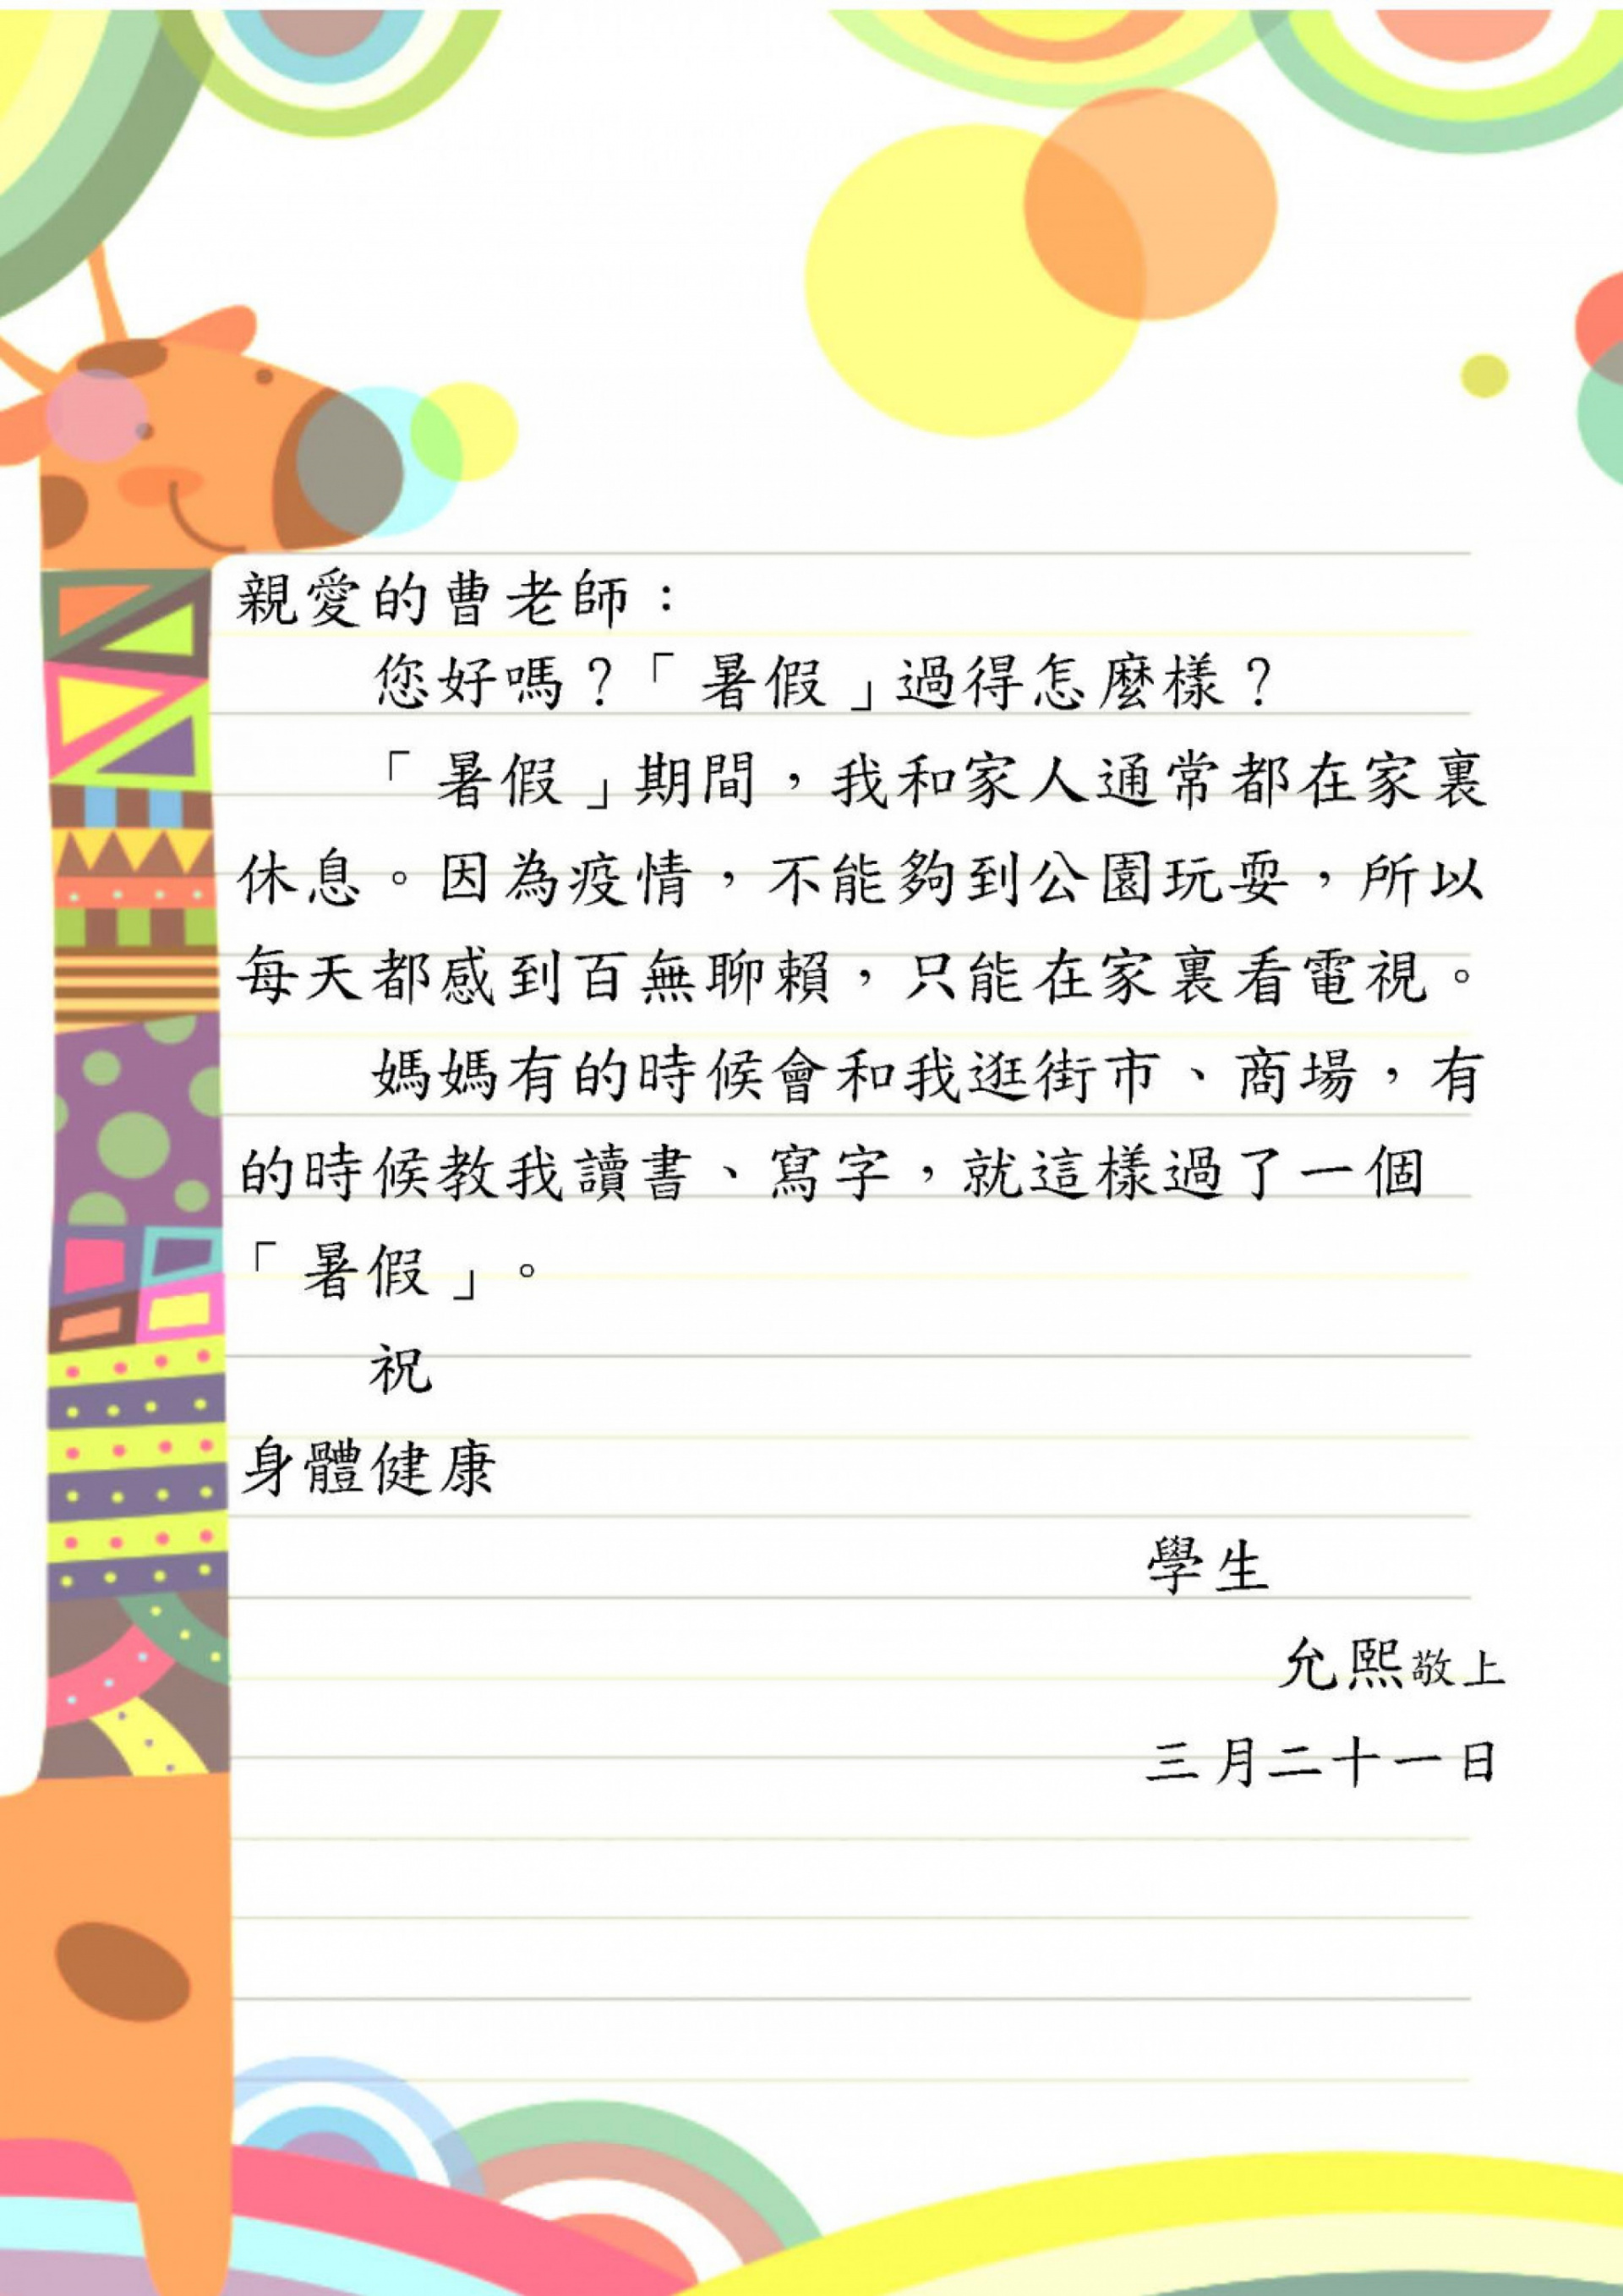 親愛的曹老師：
您好嗎？「暑假」過得怎麼樣？
「暑假」期間，我和家人通常都在家裏
休息。因為疫情，不能夠到公園玩耍，所以
每天都感到百無聊賴，只能在家裏看電視。
媽媽有的時候會和我逛街市、商場，有
的時候教我讀書、寫字，就這樣過了一個
「暑假」。
祝
身體健康
學生
允熙敬上
三月二十一日